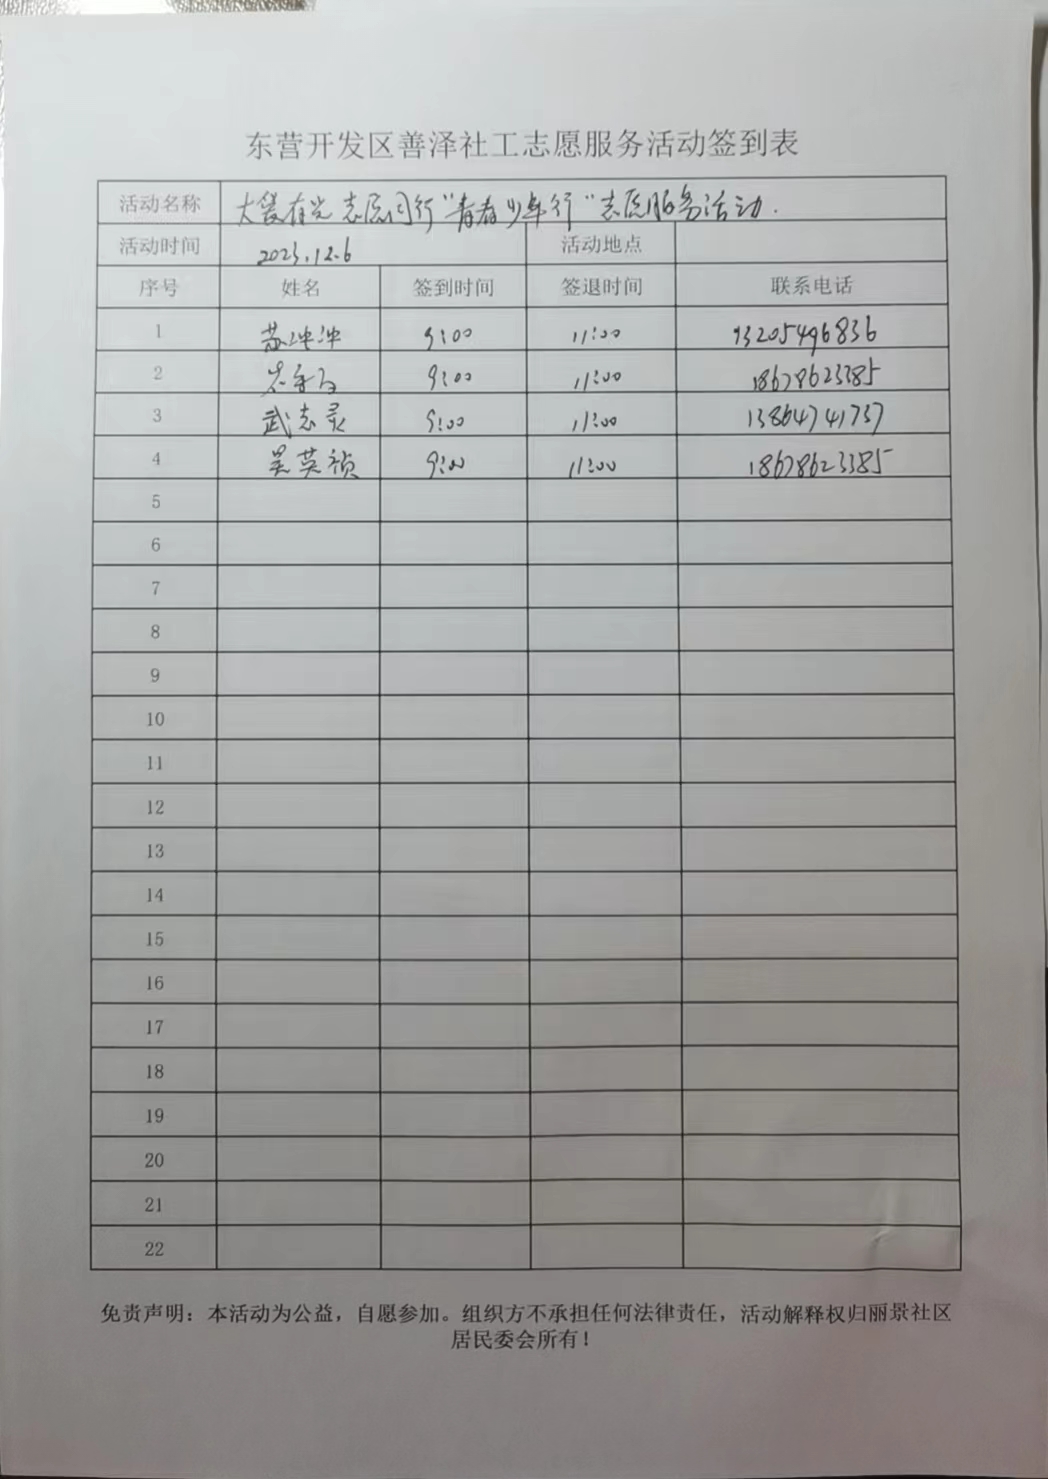 东营开发区善泽社工志愿服务活动签到表
活动名称 大爱有光 志愿同行“青春少年行”志愿服务活动.
活动时间 2023.12.6 活动地点
序号 姓名 签到时间 签退时间 联系电话
1 苏冲冲 9:00 11:00 13205496836
2 9:00 11:00 18678623385
3 武志灵 9:00 11:00 13864741737
4 吴英祯 9:00 11:00 18678623385
5
6
7
8
9
10
11
12
13
14
15
16
17
18
19
20
21
22
免责声明：本活动为公益，自愿参加。组织方不承担任何法律责任，活动解释权归丽景社区
居民委会所有！